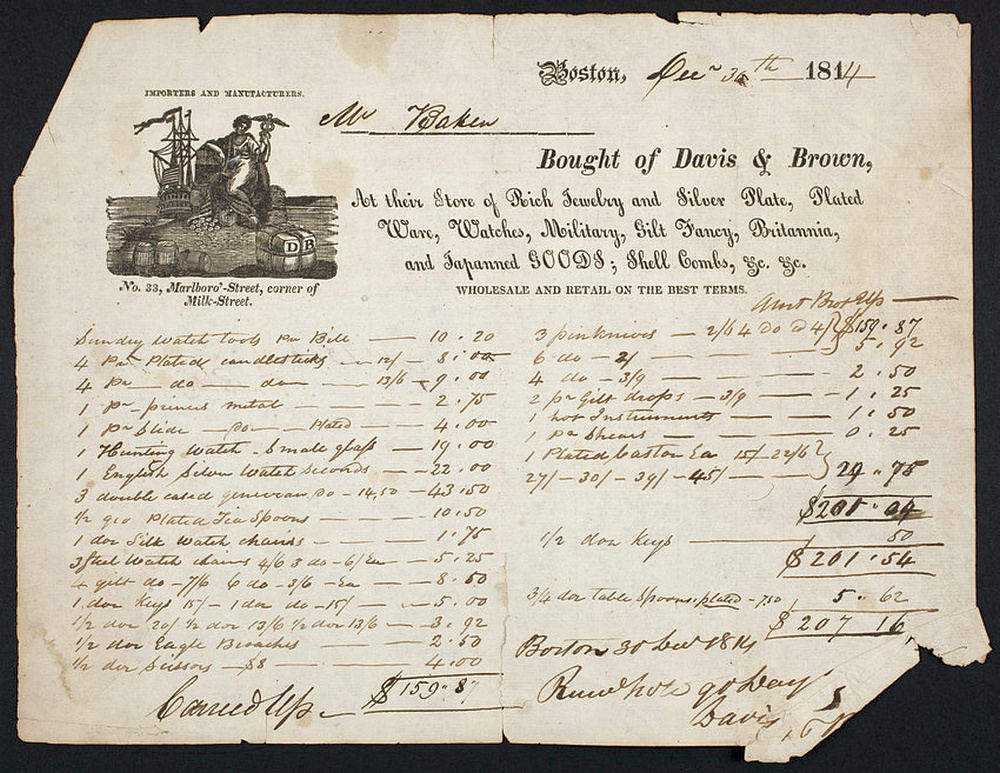 Boston, Decr 30th 1814
IMPORTERS AND MANUFACTURERS.
Mr Baker
Bought of Davis & Brown,
At their Store of Rich Jewelry and Silver Plate, Plated
Ware, Watches, Military, Gilt Fancy, Britannia,
and Japanned GOODS; Shell Combs, &c. &c.
WHOLESALE AND RETAIL ON THE BEST TERMS.
DB
No. 33, Marlboro'-Street, corner of
Milk-Street.
Sundry Watch tools Pr Bill — 10.20
4 Pr Plated candlesticks — 12/ — 8.00
4 Pr — do — do — 13/6 — 9.00
1 Pr — princes metal — 2.75
1 Pr Slide — Do — Plated — 4.00
1 Hunting Watch - Small glass — 19.00
1 English Silver Watch Seconds — 22.00
3 double cased genevan Do — 14,50 — 43.50
1/2 gro Plated Tea Spoons — 10.50
1 doz Silk Watch chains — 1.75
3 Steel Watch chains 4/6 3 do - 6/ Ea — 5.25
4 gilt do — 7/6 6 do - 3/6 - Ea — 8.50
1 doz Keys 15/ - 1 doz do - 15/ — 5.00
1/2 doz 20/ 1/2 doz 13/6 1/2 doz 13/6 — 3.92
1/2 doz Eagle Broaches — 2.50
1/2 doz Scissors — $8 — 4.00
Carried Up — $159.87
Amt Brot Up — $159.87
3 penknives — 2/6 4 Do D 4/ } 5.92
6 do — 2/
4 do — 3/9 — 2.50
2 pr Gilt drops — 3/9 — 1.25
1 lot Instruments — 1.50
1 Pr Shears — 0.25
1 Plated Castor Ea 15/ 22/6 }
27/ — 30/ — 39/ — 45/ — 29.75
$201.04
1/2 doz Keys — 50
$201.54
3/4 doz table Spoons, plated - 750 5.62
$207 16
Boston 30 Dec 1814
90 Days
Davis